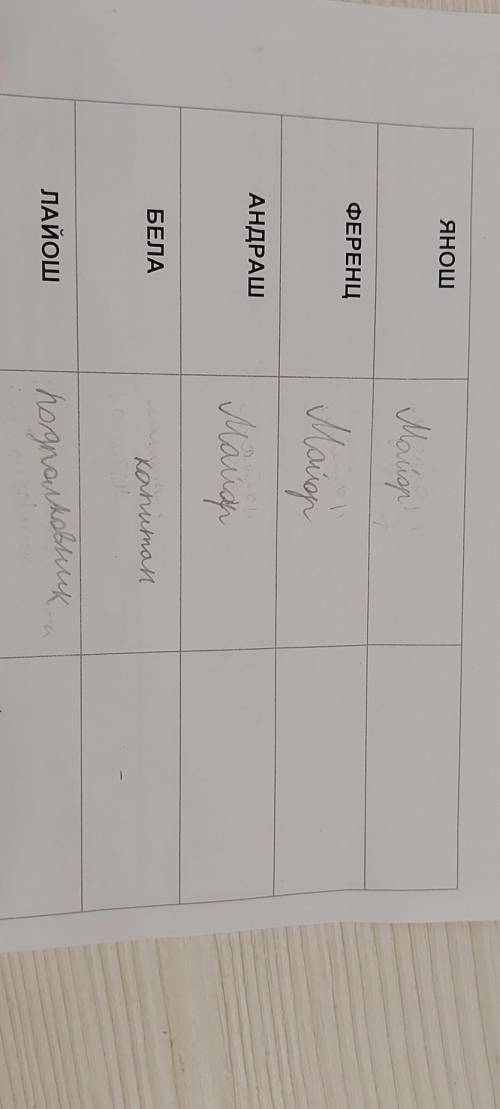 ЯНОШ Майор
ФЕРЕНЦ Майор
АНДРАШ Майор
БЕЛА капитан -
ЛАЙОШ подполковник